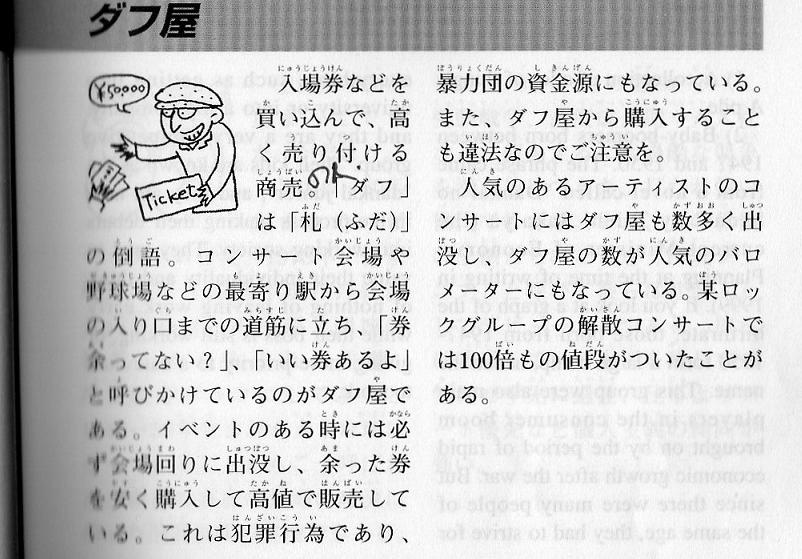 ダフ屋
¥50000
Tickets
入場券などを
買い込んで、高
く売り付ける
商売。「ダフ」
は「札(ふだ)」
の倒語。コンサート会場や
野球場などの最寄り駅から会場
の入り口までの道筋に立ち、「券
余ってない?」、「いい券あるよ」
と呼びかけているのがダフ屋で
ある。イベントのある時には必
ず会場回りに出没し、余った券
を安く購入して高値で販売して
いる。これは犯罪行為であり、
暴力団の資金源にもなっている。
また、ダフ屋から購入すること
も違法なのでご注意を。
人気のあるアーティストのコ
ンサートにはダフ屋も数多く出
没し、ダフ屋の数が人気のバロ
メーターにもなっている。某ロッ
クグループの解散コンサートで
は100倍もの値段がついたことが
ある。